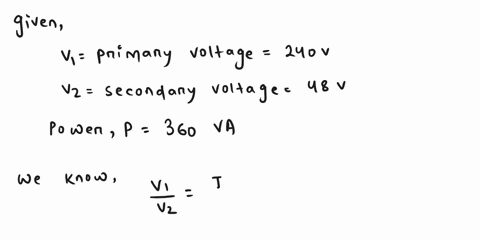 given,
V₁ = primary voltage = 240 v
V₂ = secondary voltage = 48 v
Power, P = 360 VA
we know, V₁/V₂ = T